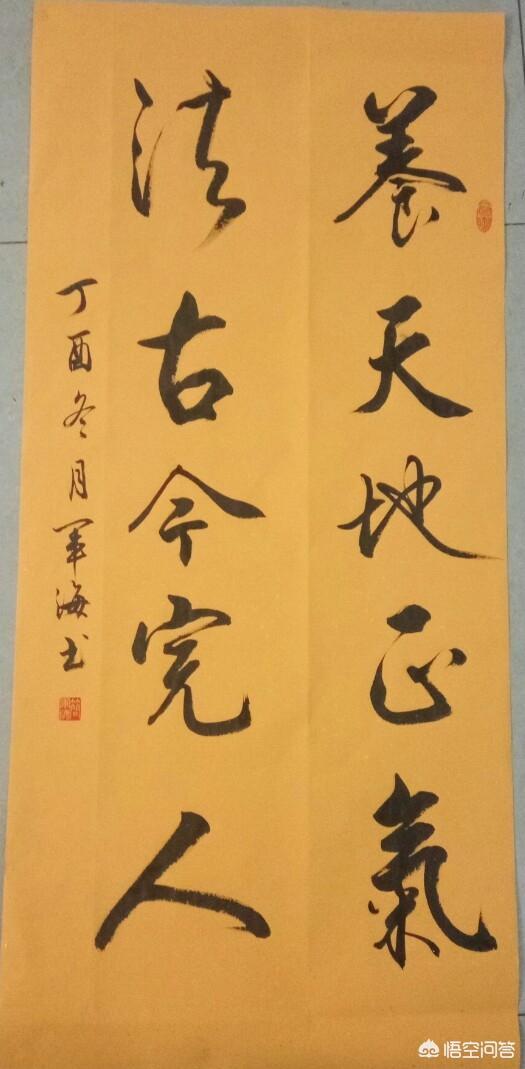 養天地正氣
法古今完人
丁酉冬月军海书
悟空问答